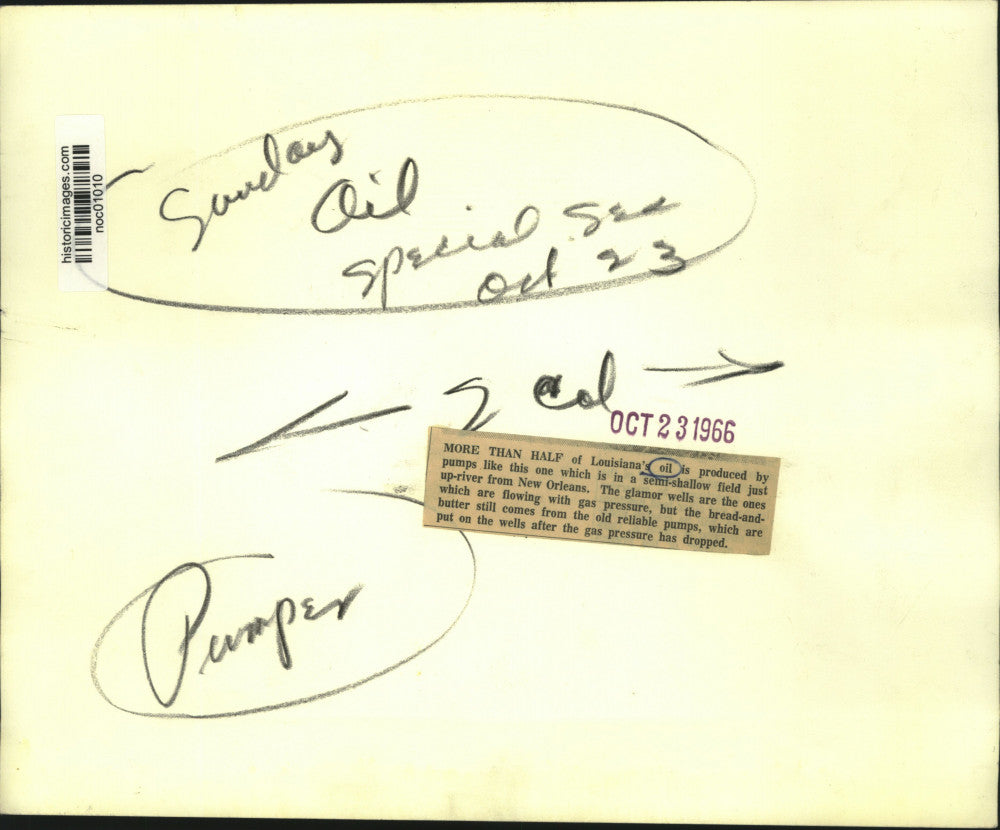 historicimages.com
noc01010
Sunday
Oil
Special Sec
Oct 23
2 col
OCT 23 1966
MORE THAN HALF of Louisiana's oil is produced by
pumps like this one which is in a semi-shallow field just
up-river from New Orleans. The glamor wells are the ones
which are flowing with gas pressure, but the bread-and-
butter still comes from the old reliable pumps, which are
put on the wells after the gas pressure has dropped.
Pumper